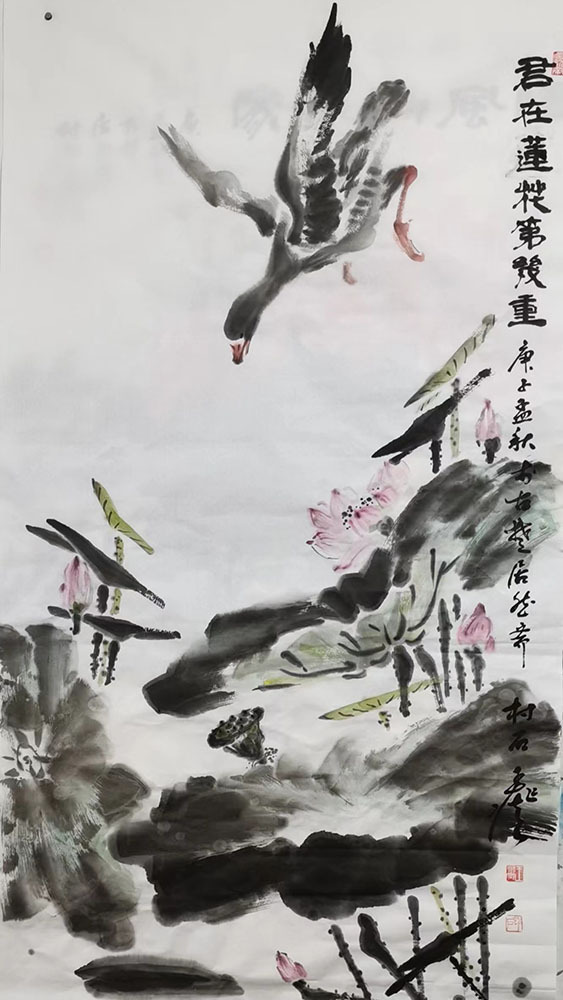 君在蓮花第幾重
庚子孟秋于古楚居然斋
村石